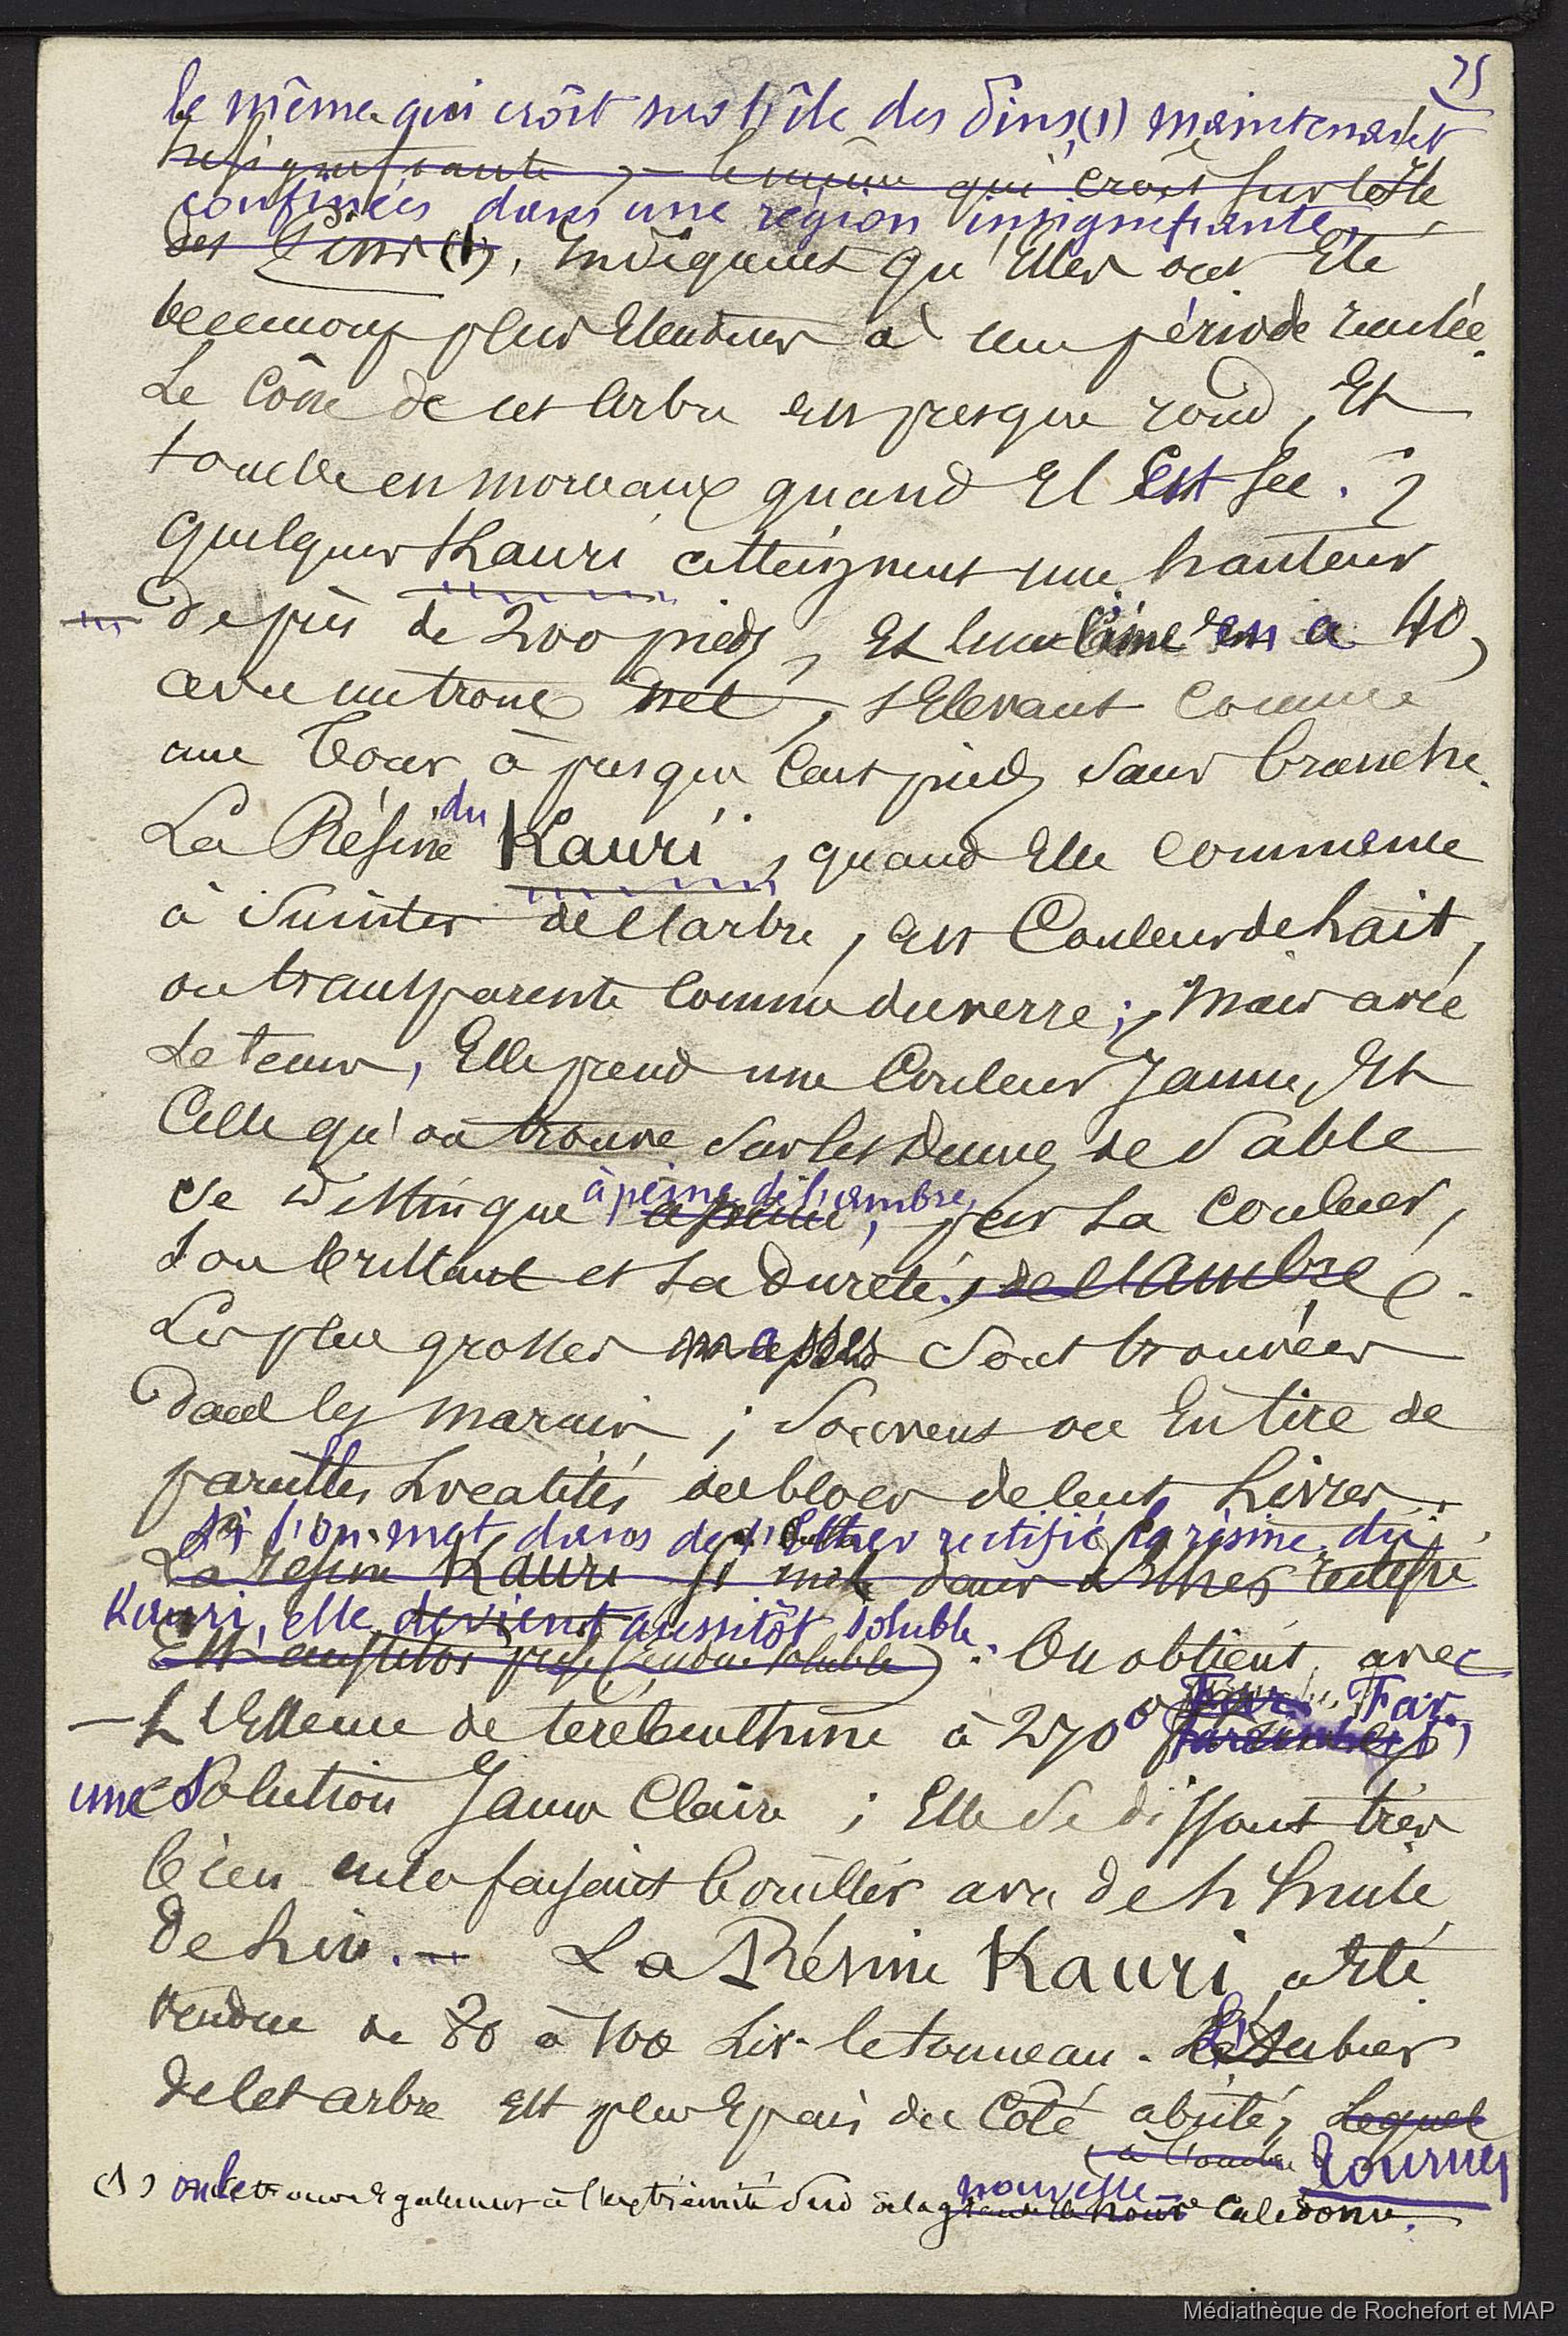 75
le même qui croît sur l'île des Pins (1) maintenant
insignifiante, le même qui croît sur l'Ile
confinées dans une région insignifiante,
des Pins (1), indiquent qu'Elles ont Eté
beaucoup plus Etendues à une période reculée.
Le Cône de cet Arbre est presque rond, Et
tombe en morceaux quand Il est sec.
quelques Kauri atteignent une hauteur
de près de 200 pieds, Et l'un en a 40,
avec un tronc net, s'Elevant comme
une Tour à presque Cent pieds sans branche.
La Résine du Kauri, quand Elle commence
à Suinter de l'arbre, est Couleur de Lait,
ou transparente Comme du verre; Mais avec
Le tems, Elle prend une Couleur Jaune, Et
Celle qu'on trouve sur les Dunes de Sable
à peine de l'ambre,
se distingue à peine, par sa couleur,
son brillant et sa dureté, de l'ambre.
Les plus grosses masses sont trouvées
dans les marais; Souvent on En tire de
pareilles Localités des blocs de Cent Livres.
Si l'on met dans de l'Ether rectifié la résine du
La résine Kauri si mise dans l'Ether rectifié
Kauri, elle devient aussitôt soluble.
Est aussitôt soluble. On obtient, avec
L'Essence de térébenthine à 270° Far. Far.,
une Solution Jaune Claire; Elle se dissout très
bien en la faisant bouillir avec de L'huile
de Lin. — La Résine Kauri a Eté
vendue de 80 à 100 Liv. le tonneau. L'Aubier
de Cet arbre Est plus Epais du Côté abrité, Lequel
à l'ombre tourné
nouvelle
(1) on le trouve Egalement à l'extrémité Sud de la Calédonie.